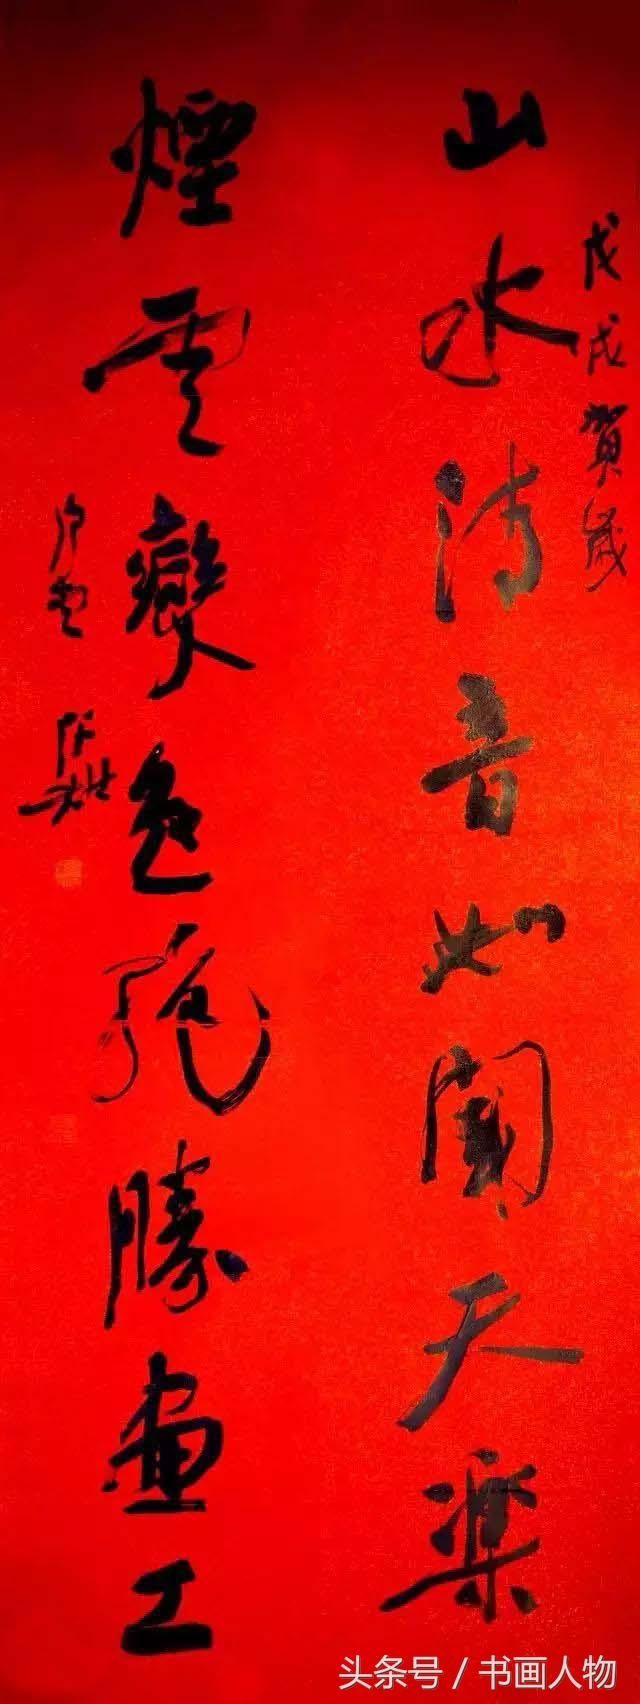 戊戌賀歲
山水清音如聞天樂
煙雲變色絶勝畫工
头条号 / 书画人物